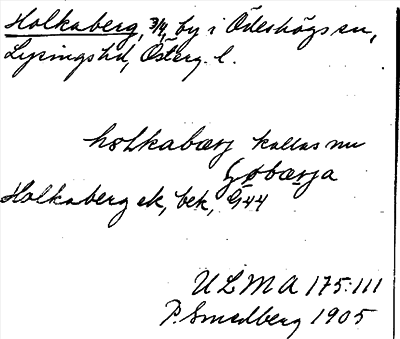 Holkaberg, 3/4, by i Ödeshögs sn,
Lysings hd, Österg. l.
holkabærj kallas nu
Holkaberg ek, bek, G44
ULMA 175:111
P. Smedberg 1905